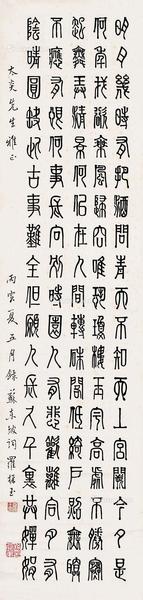 明月幾時有把酒問青天不知天上宮闕今夕是
何年我欲乘風歸去又恐瓊樓玉宇高處不勝寒
起舞弄清影何似在人間轉朱閣低綺戶照無眠
不應有恨何事長向別時圓人有悲歡離合月有
陰晴圓缺此古事難全但願人長久千里共嬋娟
太炎先生雅正
丙寅夏五月錄蘇東坡詞 羅振玉